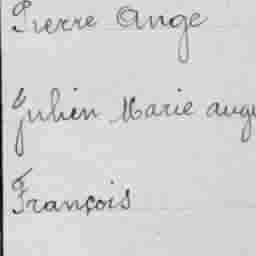 Pierre Ange
Julien Marie augu
François